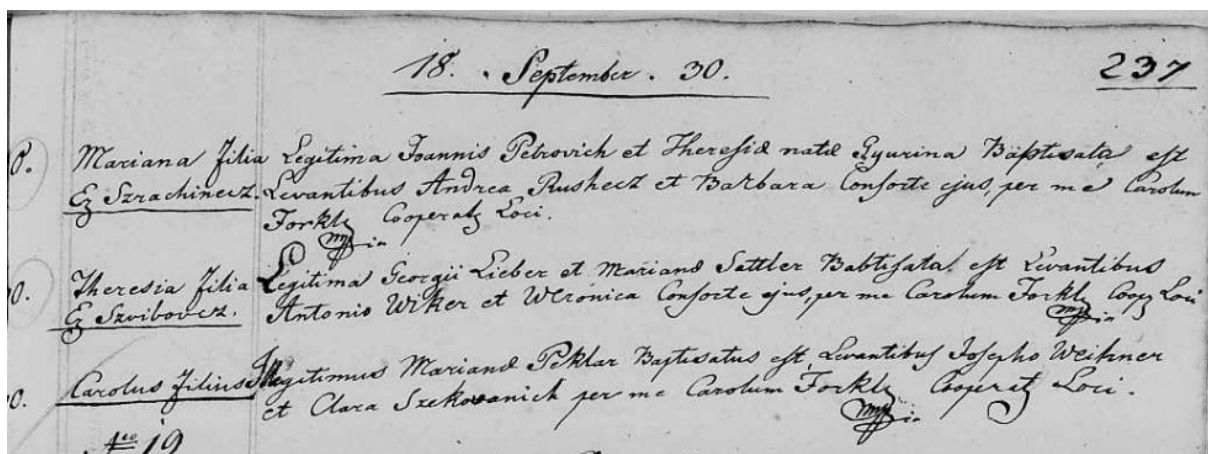 18. September. 30.
237
0. Mariana filia Legitima Joannis Petrovich et Theresiæ natæ Gyurina Baptisata est
Ex Szrachinecz. Levantibus Andrea Rushecz et Barbara Consorte ejus, per me Carolum
Forkly Cooperat Loci.
0. Theresia filia Legitima Georgii Lieber et Marianæ Sattler Babtisata est Levantibus
Ex Szvibovez. Antonio Wiker et Weronica Consorte ejus, per me Carolum Forkly Coop Loci
0. Carolus filius Illegitimus Marianæ Peklar Baptisatus est, Levantibus Josepho Weikner
et Clara Szekovanich per me Carolum Forkly Cooperat Loci.
19